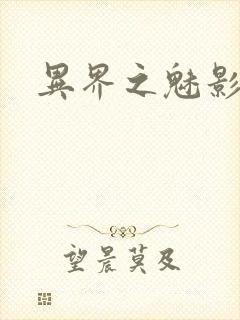 異界之魅影
望晨莫及